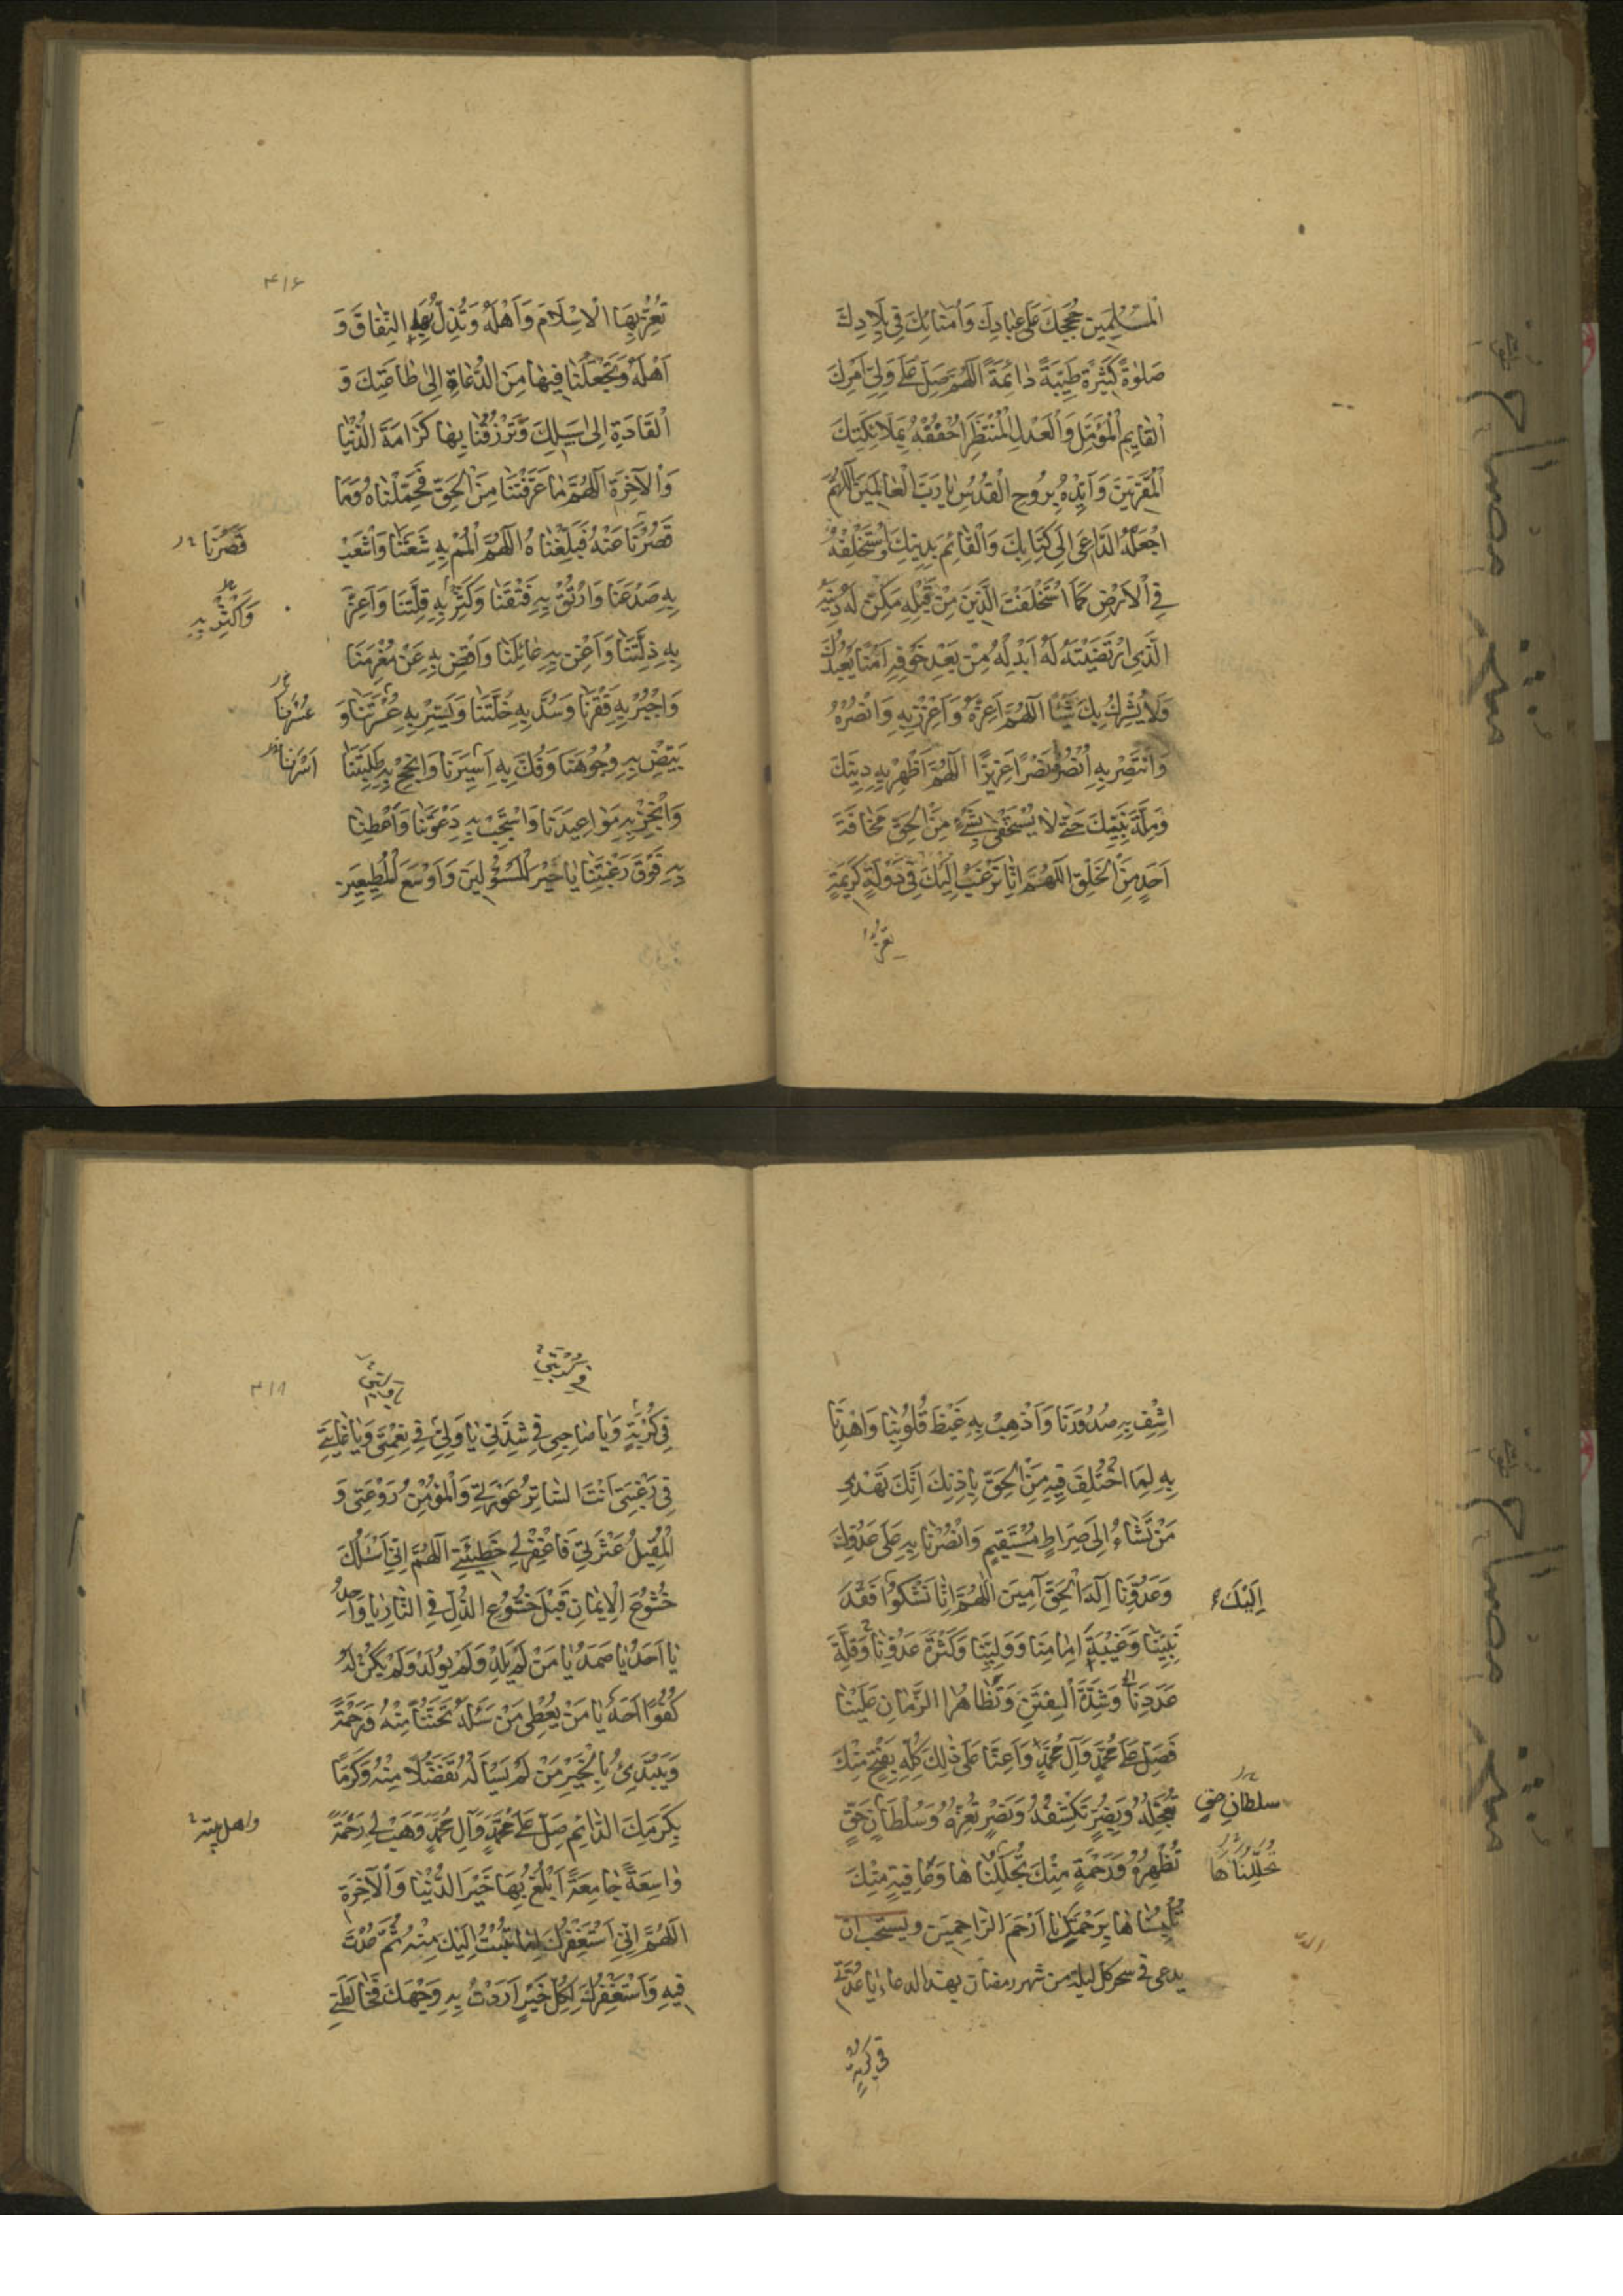 اَلْمُسْلِمِينَ حُجَجِكَ عَلَى عِبَادِكَ وَاُمَنَائِكَ فِي بِلَادِكَ
صَلٰوةً كَثِيرَةً طَيِّبَةً دَائِمَةً اَللّٰهُمَّ صَلِّ عَلَى وَلِيِّ اَمْرِكَ
اَلْقَايِمِ الْمُؤَمَّلِ وَالْعَدْلِ الْمُنْتَظَرِ اُحْفُفْهُ بِمَلَائِكَتِكَ
اَلْمُقَرَّبِينَ وَاَيِّدْهُ بِرُوحِ الْقُدُسِ يَا رَبَّ الْعَالَمِينَ اَللّٰهُمَّ
اجْعَلْهُ الدَّاعِيَ اِلَى كِتَابِكَ وَالْقَائِمَ بِدِينِكَ وَاسْتَخْلِفْهُ
فِي الْاَرْضِ كَمَا اسْتَخْلَفْتَ الَّذِينَ مِنْ قَبْلِهِ مَكِّنْ لَهُ دِينَهُ
الَّذِي ارْتَضَيْتَهُ لَهُ اَبْدِلْهُ مِنْ بَعْدِ خَوْفِهِ اَمْنًا يَعْبُدُكَ
وَلَا يُشْرِكُ بِكَ شَيْئًا اَللّٰهُمَّ اَعِزَّهُ وَاَعْزِزْ بِهِ وَانْصُرْهُ
وَانْتَصِرْ بِهِ اُنْصُرْهُ نَصْرًا عَزِيزًا اَللّٰهُمَّ اَظْهِرْ بِهِ دِينَكَ
وَمِلَّةَ نَبِيِّكَ حَتَّى لَا يَسْتَخْفِيَ بِشَيْءٍ مِنَ الْحَقِّ مَخَافَةَ
اَحَدٍ مِنَ الْخَلْقِ اَللّٰهُمَّ اِنَّا نَرْغَبُ اِلَيْكَ فِي دَوْلَةٍ كَرِيمَةٍ
تُعِزُّ
۴۱۶
تُعِزُّ بِهَا الْاِسْلَامَ وَاَهْلَهُ وَتُذِلُّ بِهَا النِّفَاقَ وَ
اَهْلَهُ وَتَجْعَلُنَا فِيهَا مِنَ الدُّعَاةِ اِلَى طَاعَتِكَ وَ
الْقَادَةِ اِلَى سَبِيلِكَ وَتَرْزُقُنَا بِهَا كَرَامَةَ الدُّنْيَا
وَالْاٰخِرَةِ اَللّٰهُمَّ مَا عَرَّفْتَنَا مِنَ الْحَقِّ فَحَمِّلْنَاهُ وَمَا
قَصُرْنَا عَنْهُ فَبَلِّغْنَاهُ اَللّٰهُمَّ الْمُمْ بِهِ شَعَثَنَا وَاشْعَبْ
قَصَّرْنَا
بِهِ صَدْعَنَا وَارْتُقْ بِهِ فَتْقَنَا وَكَثِّرْ بِهِ قِلَّتَنَا وَاَعِزَّ
وَاَكْثِرْ بِهِ
بِهِ ذِلَّتَنَا وَاَغْنِ بِهِ عَائِلَنَا وَاقْضِ بِهِ عَنْ مُغْرَمِنَا
وَاجْبُرْ بِهِ فَقْرَنَا وَسُدَّ بِهِ خَلَّتَنَا وَيَسِّرْ بِهِ عُسْرَتَنَا وَ
عُسْرَنَا
بَيِّضْ بِهِ وُجُوهَنَا وَفُكَّ بِهِ اَسِيرَنَا وَانْجِحْ بِهِ طَلِبَتَنَا
اَسْرَنَا
وَانْجِزْ بِهِ مَوَاعِيدَنَا وَاسْتَجِبْ بِهِ دَعْوَتَنَا وَاَعْطِنَا
بِهِ فَوْقَ رَغْبَتِنَا يَا خَيْرَ الْمَسْئُولِينَ وَاَوْسَعَ الْمُطِيعِينَ
اِشْفِ بِهِ صُدُورَنَا وَاَذْهِبْ بِهِ غَيْظَ قُلُوبِنَا وَاهْدِنَا
بِهِ لِمَا اخْتُلِفَ فِيهِ مِنَ الْحَقِّ بِاِذْنِكَ اِنَّكَ تَهْدِي
مَنْ تَشَاءُ اِلَى صِرَاطٍ مُسْتَقِيمٍ وَانْصُرْنَا بِهِ عَلَى عَدُوِّكَ
وَعَدُوِّنَا اِلٰهَ الْحَقِّ آمِينَ اَللّٰهُمَّ اِنَّا نَشْكُوا فَقْدَ
اِلَيْكَ
نَبِيِّنَا وَغَيْبَةَ اِمَامِنَا وَوَلِيِّنَا وَكَثْرَةَ عَدُوِّنَا وَقِلَّةَ
عَدَدِنَا وَشِدَّةَ الْفِتَنِ وَتَظَاهُرَ الزَّمَانِ عَلَيْنَا
فَصَلِّ عَلَى مُحَمَّدٍ وَآلِ مُحَمَّدٍ وَاَعِنَّا عَلَى ذٰلِكَ كُلِّهِ بِفَتْحٍ مِنْكَ
تُعَجِّلُهُ وَبِضُرٍّ تَكْشِفُهُ وَنَصْرٍ تُعِزُّهُ وَسُلْطَانِ حَقٍّ
سلطانِ حقٍ
تُظْهِرُهُ وَرَحْمَةٍ مِنْكَ تُجَلِّلُنَاهَا وَعَافِيَةٍ مِنْكَ
تُجَلِّلْنَاهَا
تُلْبِسُنَاهَا بِرَحْمَتِكَ يَا اَرْحَمَ الرَّاحِمِينَ ويستحب ان
يدعى في سحر كل ليلة من شهر رمضان بهذا الدعاء يَا عُدَّتِي
في كربةٍ
فِي كُرْبَةٍ وَيَا صَاحِبِي فِي شِدَّتِي يَا وَلِيِّي فِي نِعْمَتِي وَيَا غَايَتِي
فِي رَغْبَتِي اَنْتَ السَّاتِرُ عَوْرَتِي وَالْمُؤْمِنُ رَوْعَتِي وَ
الْمُقِيلُ عَثْرَتِي فَاغْفِرْ لِي خَطِيئَتِي اَللّٰهُمَّ اِنِّي اَسْئَلُكَ
خُشُوعَ الْاِيمَانِ قَبْلَ خُشُوعِ الذُّلِّ فِي النَّارِ يَا وَاحِدُ
يَا اَحَدُ يَا صَمَدُ يَا مَنْ لَمْ يَلِدْ وَلَمْ يُولَدْ وَلَمْ يَكُنْ لَهُ
كُفُوًا اَحَدٌ يَا مَنْ يُعْطِي مَنْ سَئَلَهُ تَحَنُّنًا مِنْهُ وَرَحْمَةً
وَيَبْتَدِئُ بِالْخَيْرِ مَنْ لَمْ يَسْاَلْهُ تَفَضُّلًا مِنْهُ وَكَرَمًا
بِكَرَمِكَ الدَّائِمِ صَلِّ عَلَى مُحَمَّدٍ وَآلِ مُحَمَّدٍ وَهَبْ لِي رَحْمَةً
واهل بيته
وَاسِعَةً جَامِعَةً اَبْلُغُ بِهَا خَيْرَ الدُّنْيَا وَالْآخِرَةِ
اَللّٰهُمَّ اِنِّي اَسْتَغْفِرُكَ لِمَا تُبْتُ اِلَيْكَ مِنْهُ ثُمَّ عُدْتُ
فِيهِ وَاَسْتَغْفِرُكَ لِكُلِّ خَيْرٍ اَرَدْتُ بِهِ وَجْهَكَ فَخَالَطَنِي